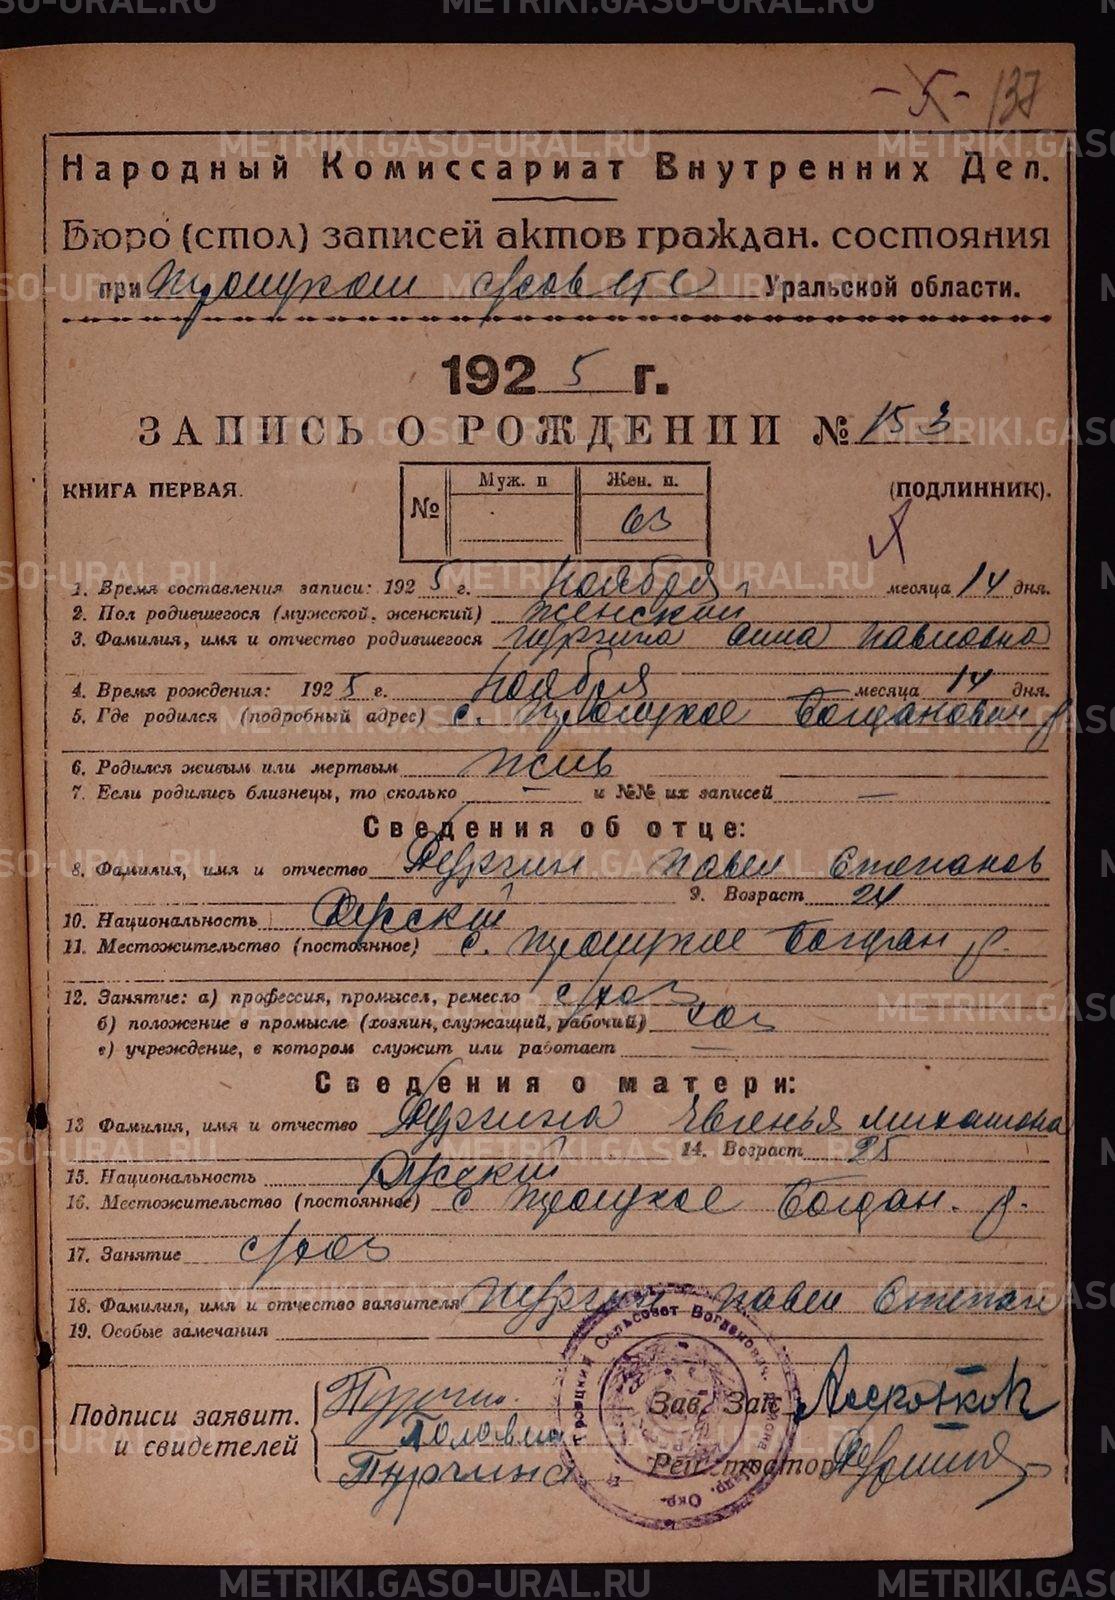 - 5 - 137
Народный Комиссариат Внутренних Дел.
Бюро (стол) записей актов граждан. состояния
при Троицком с/совете Уральской области.
1925 г.
ЗАПИСЬ О РОЖДЕНИИ № 153
КНИГА ПЕРВАЯ. (ПОДЛИННИК).
№ Муж. п Жен. п.
63
1. Время составления записи: 1925 г. Ноября месяца 14 дня.
2. Пол родившегося (мужской, женский) женский
3. Фамилия, имя и отчество родившегося Пургина Анна Павловна
4. Время рождения: 1925 г. Ноября месяца 14 дня.
5. Где родился (подробный адрес) с. Троицкое Богданович р
6. Родился живым или мертвым жив
7. Если родились близнецы, то сколько — и №№ их записей —
Сведения об отце:
8. Фамилия, имя и отчество Пургин Павел Степанов
9. Возраст 24
10. Национальность Русский
11. Местожительство (постоянное) с. Троицкое Богдан р.
12. Занятие: а) профессия, промысел, ремесло с/хоз
б) положение в промысле (хозяин, служащий, рабочий) хоз
в) учреждение, в котором служит или работает —
Сведения о матери:
13 Фамилия, имя и отчество Пургина Евгенья Михайловна
14. Возраст 25
15. Национальность Русский
16. Местожительство (постоянное) с Троицкое Богдан. р.
17. Занятие с/хоз
18. Фамилия, имя и отчество заявителя Пургин Павел Степан
19. Особые замечания
Подписи заявит.
и свидетелей
Пургин
Пургина
Зав. Заг
Регистратор
Троицкий Сельсовет Богданович. района Окр.
METRIKI.GASO-URAL.RU